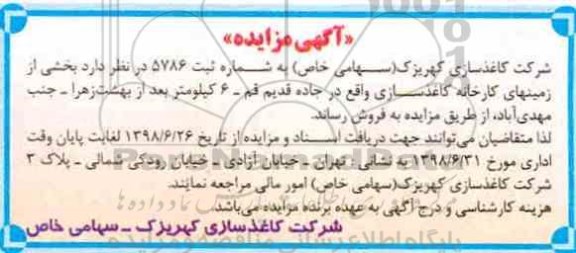 «آگهی مزایده»
شرکت کاغذسازی کهریزک(سهامی خاص) به شماره ثبت ۵۷۸۶ در نظر دارد بخشی از
زمینهای کارخانه کاغذسازی واقع در جاده قدیم قم ـ ۶ کیلومتر بعد از بهشت‌زهرا ـ جنب
مهدی‌آباد، از طریق مزایده به فروش رساند.
لذا متقاضیان می‌توانند جهت دریافت اسناد و مزایده از تاریخ ۱۳۹۸/۶/۲۶ لغایت پایان وقت
اداری مورخ ۱۳۹۸/۶/۳۱ به نشانی : تهران ـ خیابان آزادی ـ خیابان رودکی شمالی ـ پلاک ۳
شرکت کاغذسازی کهریزک(سهامی خاص) امور مالی مراجعه نمایند.
هزینه کارشناسی و درج آگهی به عهده برنده مزایده می‌باشد.
شرکت کاغذسازی کهریزک ـ سهامی خاص